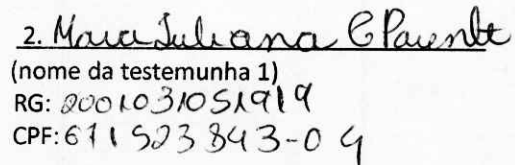 2. Maria Juliana C Parente
(nome da testemunha 1)
RG: 2001031051919
CPF: 611523843-04